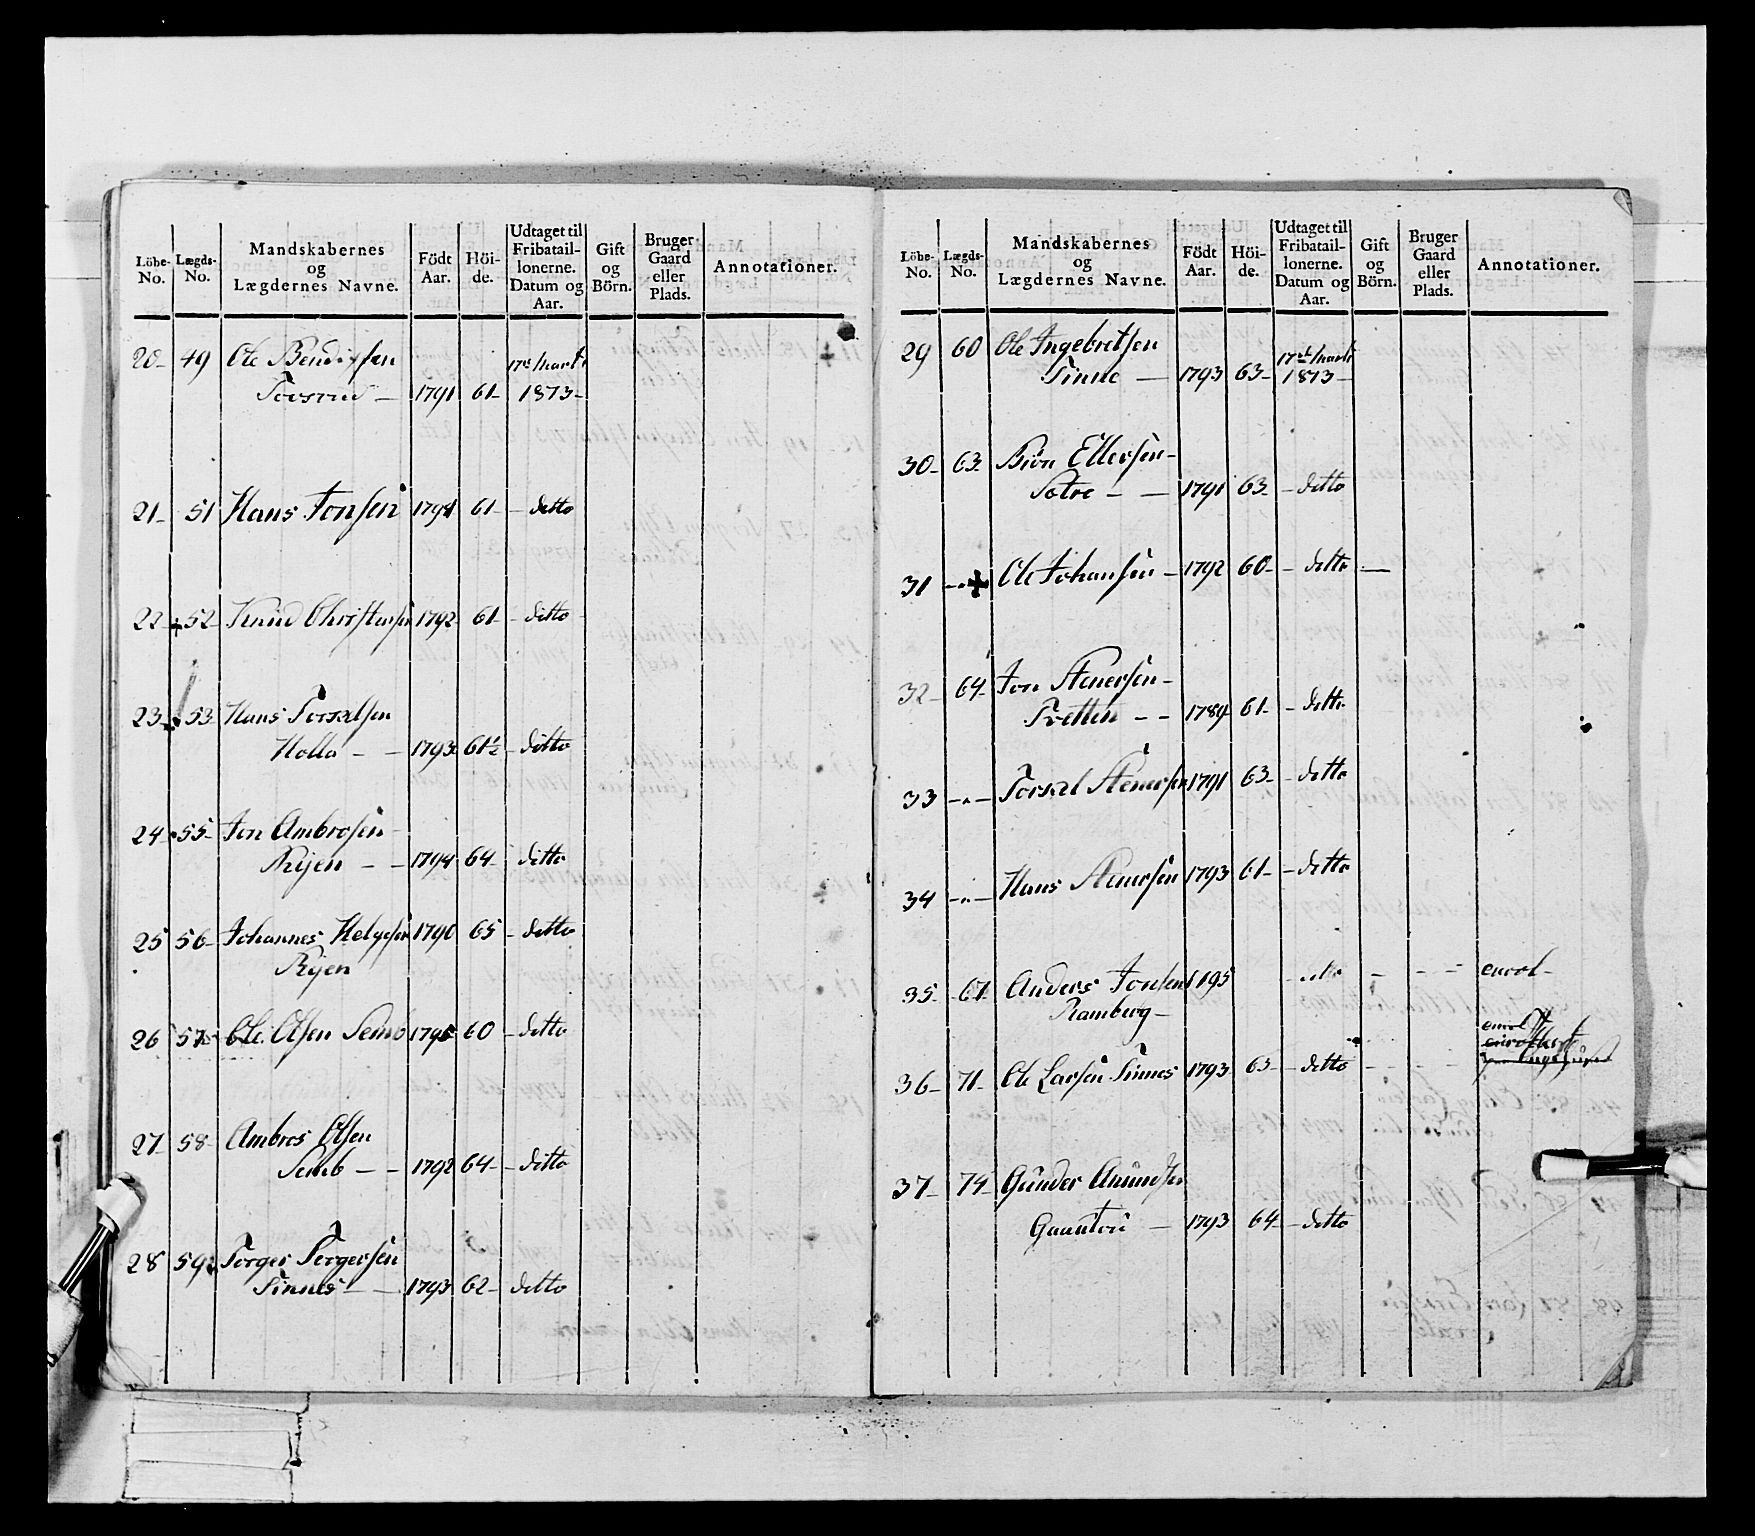 Löbe-No. Lægds-No. Mandskabernes og Lægdernes Navne. Födt Aar. Höi-de. Udtaget til Fribatail-lonerne. Datum og Aar. Gift og Börn. Bruger Gaard eller Plads. Annotationer.
20- 49 Ole Bendixsen
1791 61- 17de Marti 1813-
21- 51 Hans Jonsen 1794 61- - detto
22- 52- Knud Christensen 1792 61- - ditto
23- 53- Hans Torsalsen
Holla - - 1793 61½ - ditto
24- 55- Jon Ambrosen -
Ryen - - 1794 64- ditto
25 56- Johannes Helgesen 1790 65 - detto
Ryen
26 57- Ole Olsen Semb 1795 60 - detto
27- 58- Ambros Olsen
Semb - - 1792 64- - ditto
28 59 Torger Torgersen
Sinnes - - 1793 62- detto
Löbe-No. Lægds-No. Mandskabernes og Lægdernes Navne. Födt Aar. Höi-de. Udtaget til Fribatail-lonerne. Datum og Aar. Gift og Börn. Bruger Gaard eller Plads. Annotationer.
29 60 Ole Ingebretsen
Sinne - 1793 63- 17de Marti 1813-
30- 63 Biön Ellevsen-
Sætre - - 1791 63- - detto
31 -"- Ole Johansen - 1792 60- - detto -
32- 64- Jon Stenersen-
Tvetten - - 1789 61- - detto
33 -"- Torsal Stenersen 1791 63- - detto
34 -"- Hans Stenersen 1793 61- - detto
35- 67 Anders Jonsen 1795 - detto - - - enrol-
Ramberg-
36- 71- Ole Larsen Sinnes 1793 63- - detto - - - enrol
37- 74- Gunder Amundsen
1793 64- - detto